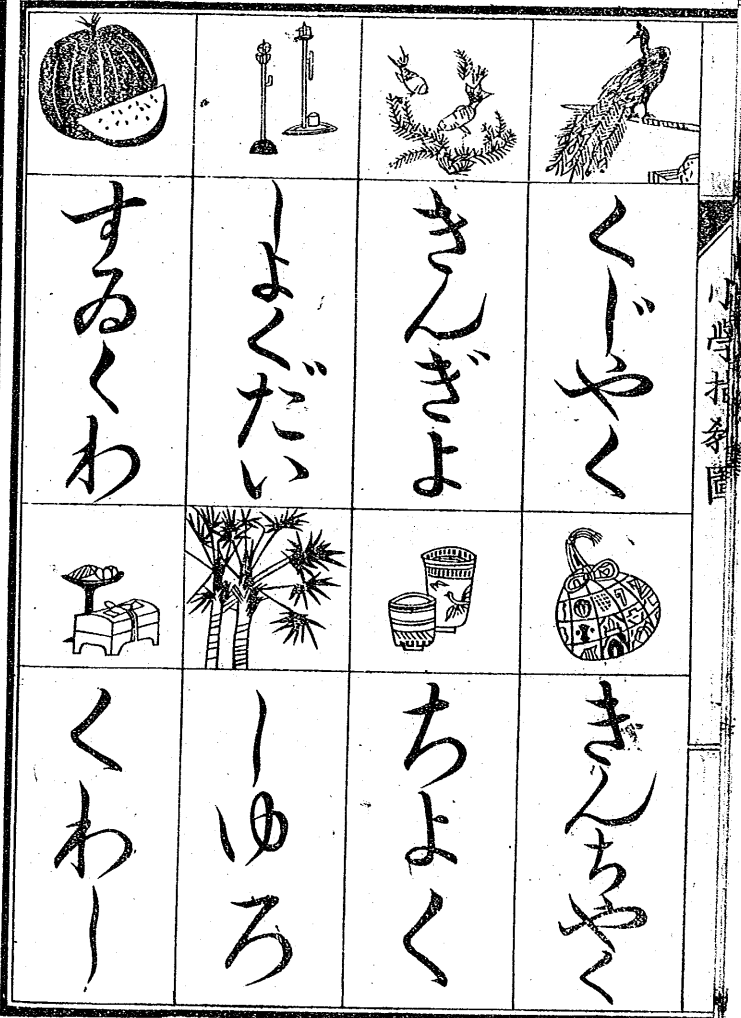 小學指教圖
くじやく
きんぎよ
しよくだい
すゐくわ
きんちやく
ちよく
しゆろ
くわし